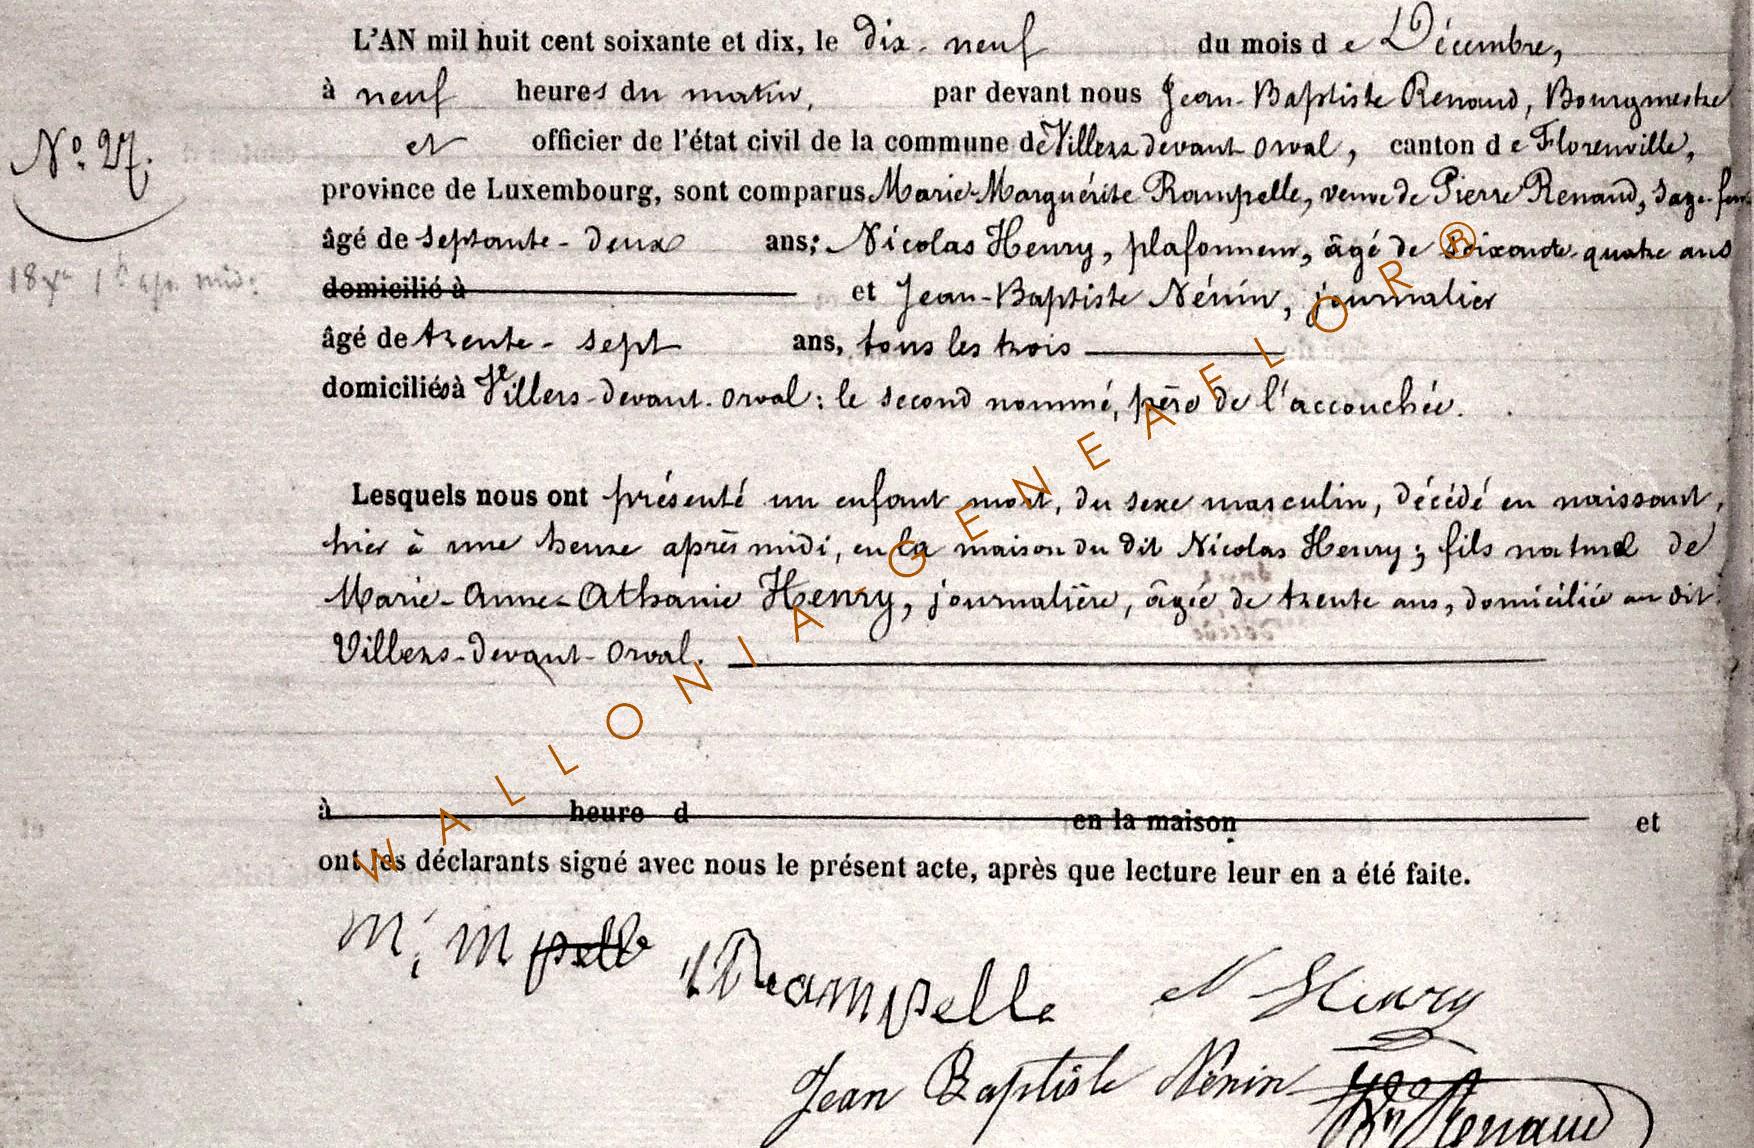 L'AN mil huit cent soixante et dix, le dix-neuf du mois de Décembre,
à neuf heures du matin, par devant nous Jean-Baptiste Renaud, Bourgmestre
N.° 27. et officier de l'état civil de la commune de Villers devant orval, canton de Florenville,
province de Luxembourg, sont comparus Marie-Marguérite Rampelle, veuve de Pierre Renaud, sage-fem
âgé de septante-deux ans; Nicolas Henry, plafonneur, âgé de soixante-quatre ans
18 1 h ap. mid:
domicilié à et Jean-Baptiste Nénin, journalier
âgé de trente-sept ans, tous les trois
domiciliés à Villers-devant-orval: le second nommé, père de l'accouchée.
Lesquels nous ont présenté un enfant mort, du sexe masculin, décédé en naissant,
hier à une heure après midi, en la maison du dit Nicolas Henry; fils naturel de
Marie-Anne-Athanie Henry, journalière, âgée de trente ans, domiciliée au dit
Villers-devant-orval.
à heure d en la maison et
ont les déclarants signé avec nous le présent acte, après que lecture leur en a été faite.
M, M pelle Rampelle N Henry
Jean Baptiste Nénin
Renaud
WALLONIA-GENEAFLOR®